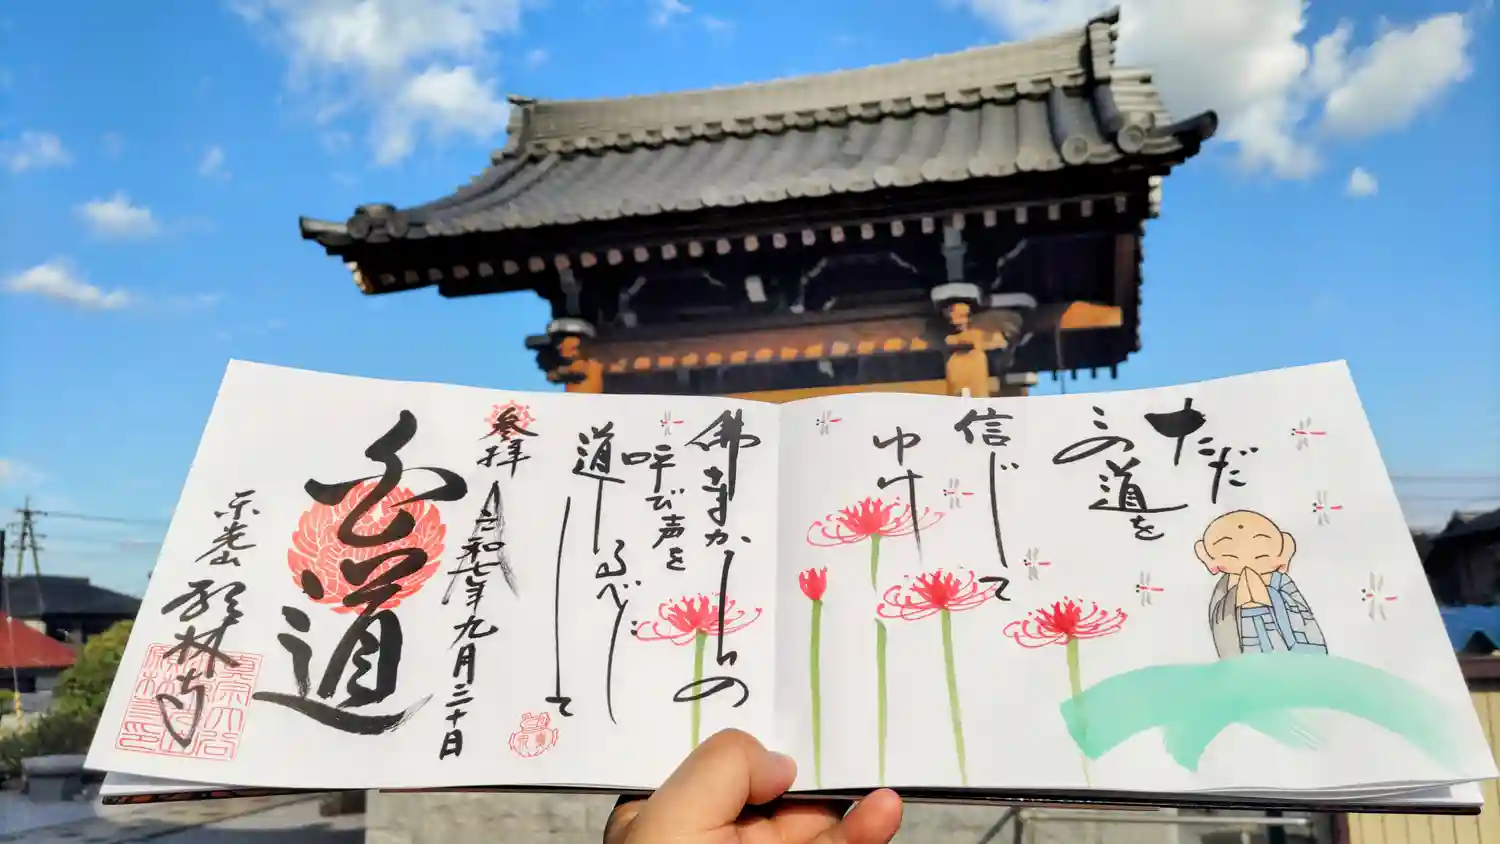 ただ
この道を
信じて
ゆけ
佛さまからの
呼び声を
道しるべに
して
参拝
令和七年九月二十日
白道
林寺